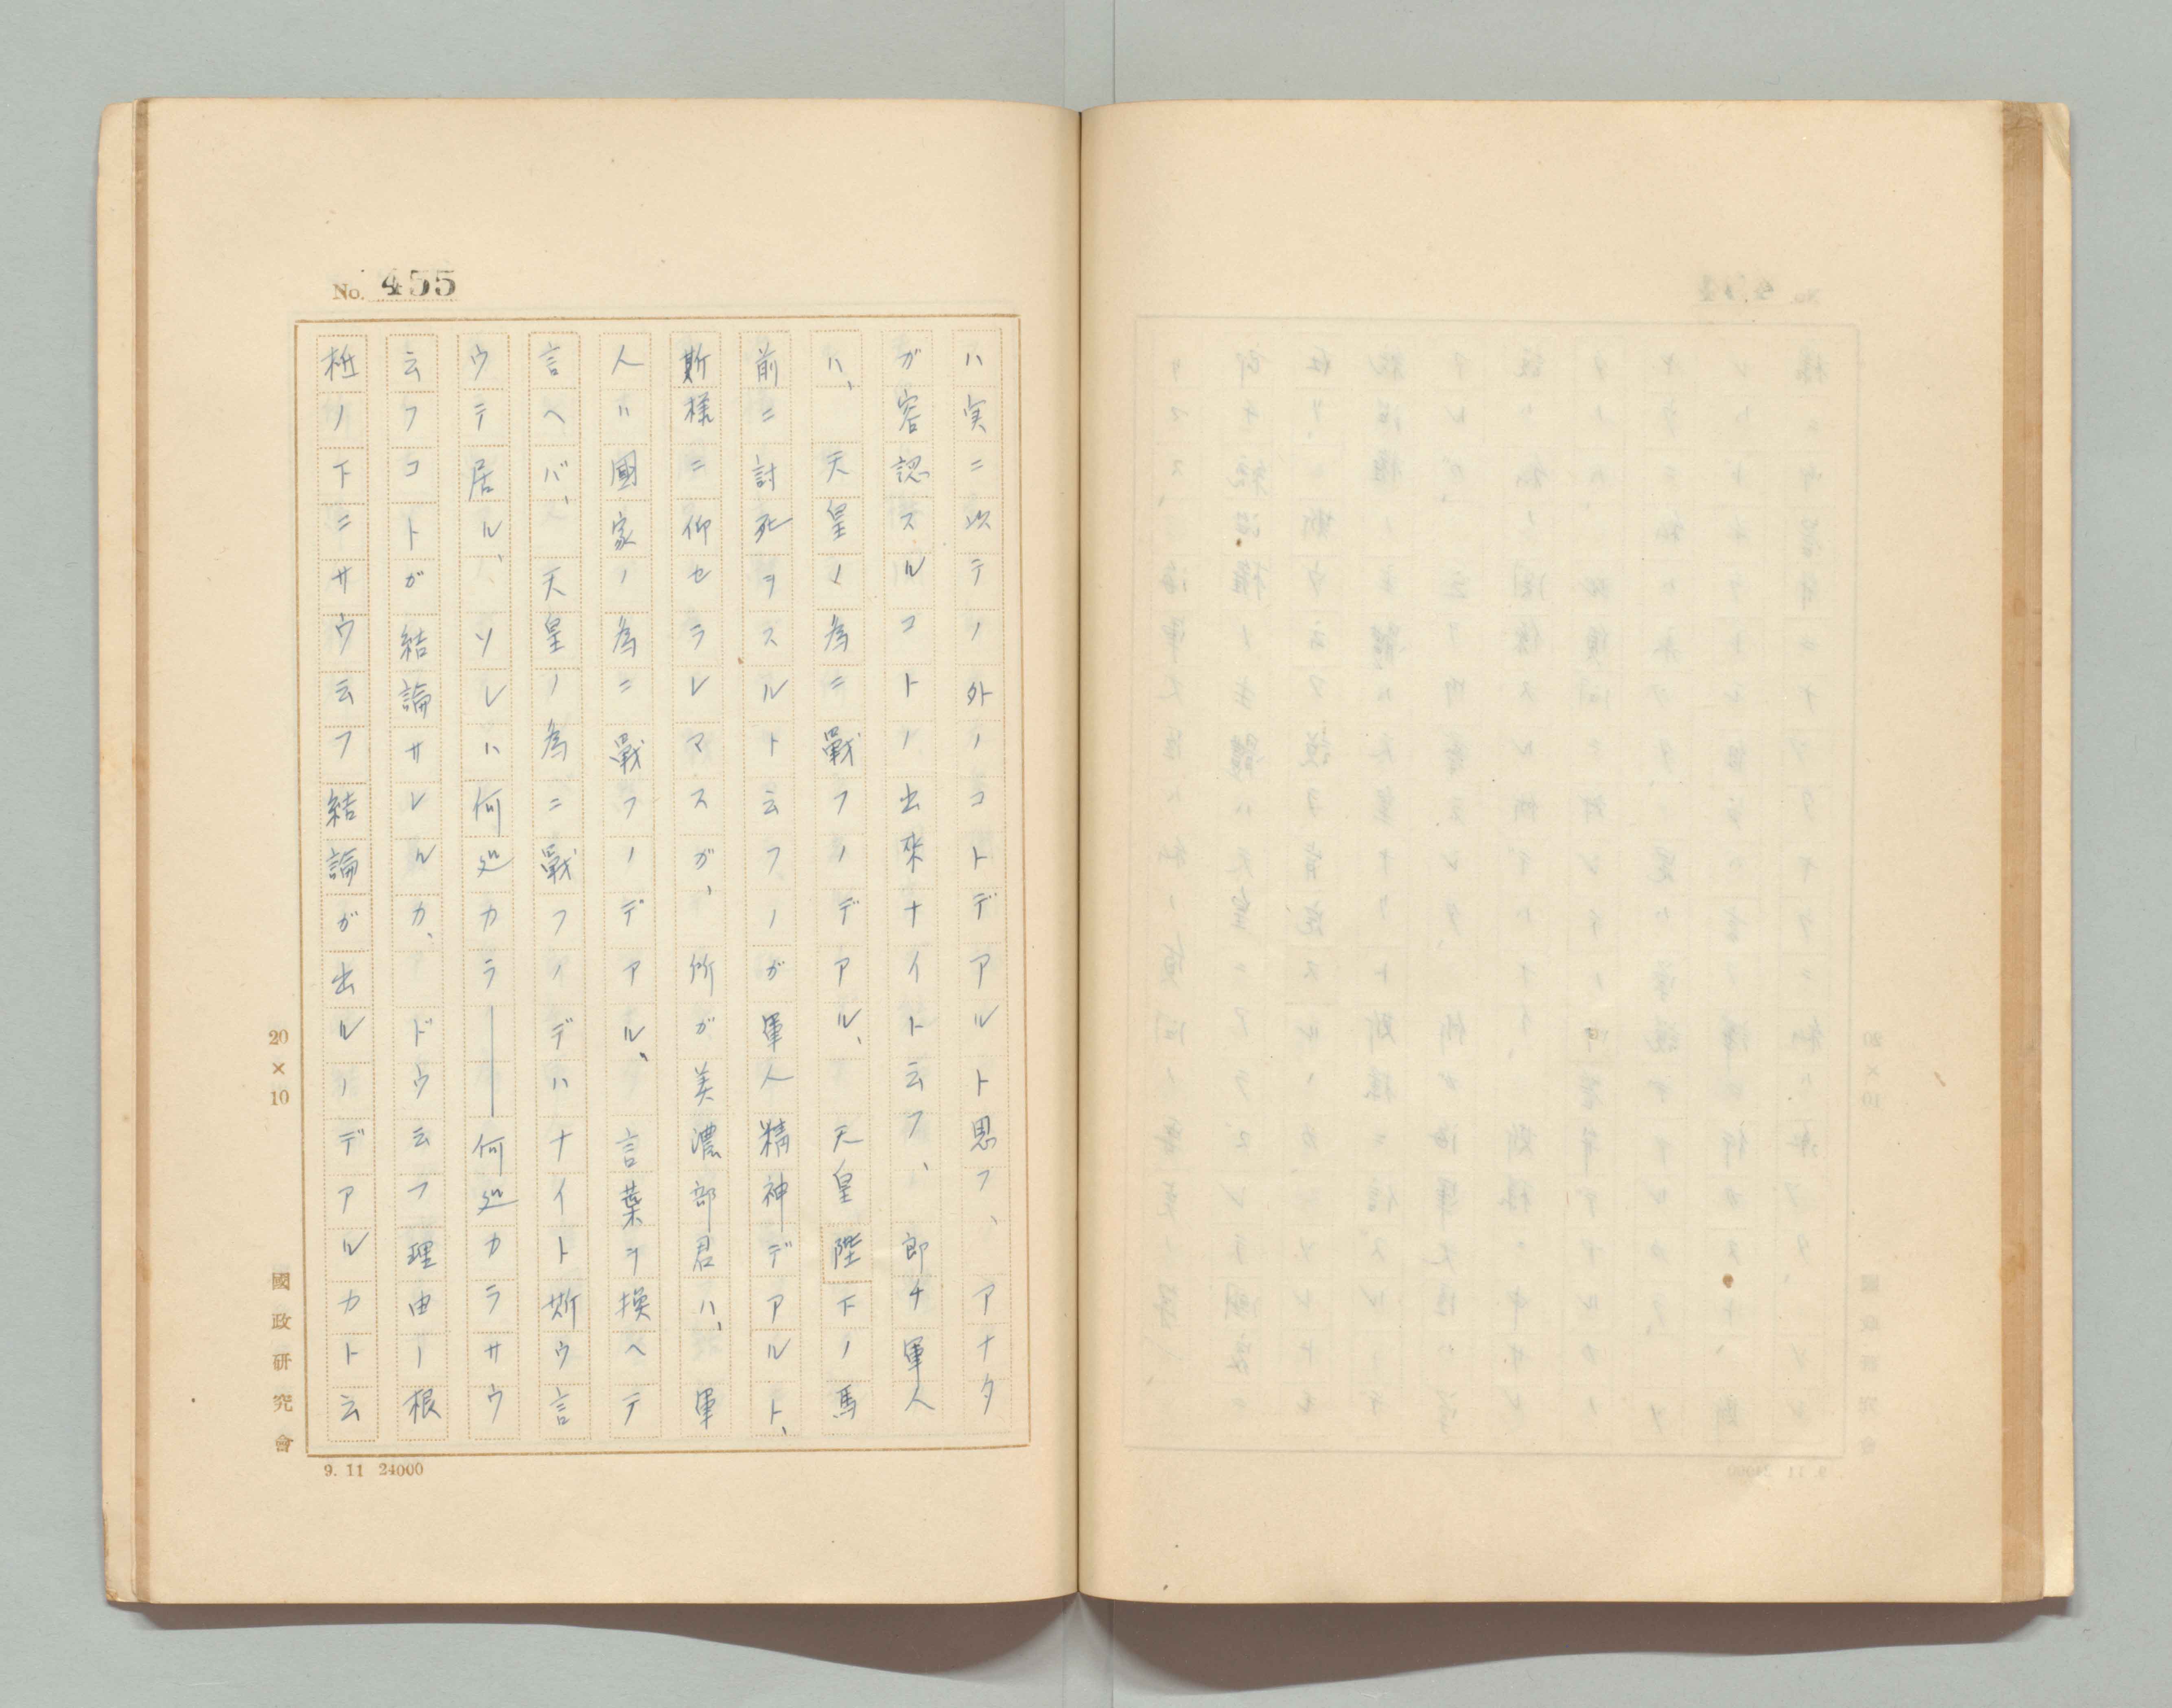 No. 455
ハ実ニ以テノ外ノコトデアルト思フ、アナタ
ガ容認スルコトノ出來ナイト云フ、郎チ軍人
ハ、天皇ノ為ニ戰フノデアル、天皇陛下ノ馬
前ニ討死ヲスルト云フノガ軍人精神デアルト、
斯様ニ仰セラレマスガ、所ガ美濃部君ハ、軍
人ハ國家ノ為ニ戰フノデアル、言葉ヲ換ヘテ
言ヘバ、天皇ノ為ニ戰フノデハナイト斯ウ言
ウテ居ル、ソレハ何処カラ――何処カラサウ
云フコトガ結論サレルカ、ドウ云フ理由ノ根
柢ノ下ニサウ云フ結論ガ出ルノデアルカト云
20×10
國政研究會
9. 11 24000